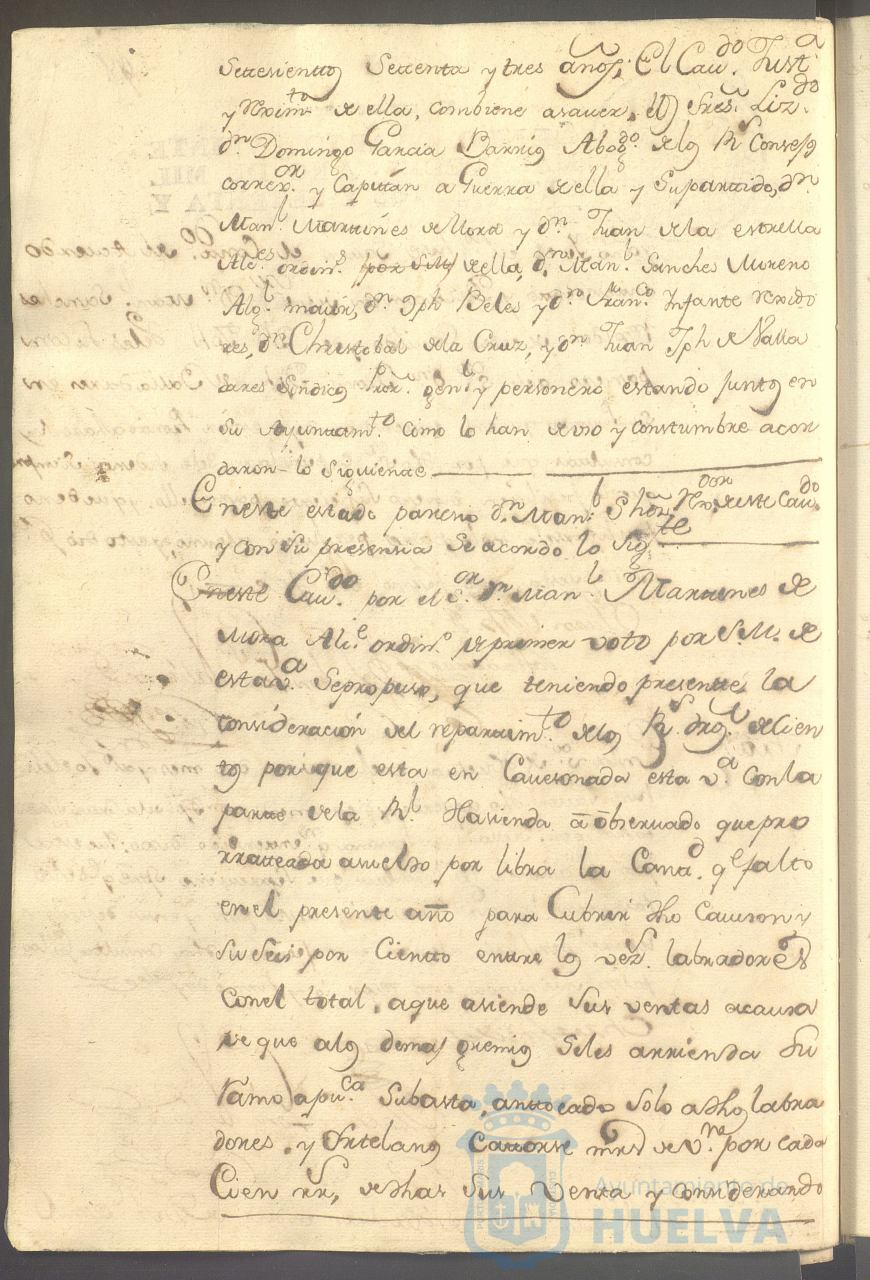 Settesientos Settenta y tres años; El Cavdo. Justa.
y Reximto. de ella, combiene a saver, els Sres. Lizdo.
dn. Domingo Garcia Barrios Abogdo. de los Rs. Consejos
correxor. y Capitán a Guerra de ella y su partido, dn.
Manl. Martines de Mora y dn. Juan de la estrella
Alces. ordins. por S M de ella, dn. Manl. Sanches Moreno
Algl. maior, dn. Jph Beles y dn. Franco. Infante rexido
res, dn. Christobal de la Cruz, y dn. Juan Jph de Valla
dares Sindicos Pror. genl. y personero estando juntos en
su Ayuntamto. como lo han de uso y constumbre acor
daron lo siguiente
En este estado parecio dn. Manl. Rexor. de este Cavdo.
y con su presensia se acordo lo sigte.
En este Cavdo. por el Sor. dn. Manl. Martines de
Mora Alce. ordino. de primer voto por S. M. de
esta va. se propuso, que teniendo presente la
consideración del repartimto. de los Rs. dros. de Cien
tos por que esta en Cavesonada esta va. con la
parte de la Rl. Hasienda a observado que pro
rrateada a sueldo por libra la Cantd. qe falto
en el presente año para Cubrir dho Caveson y
su seis por Ciento entre los vesr. labradores
con el total, a que asiende sus ventas a causa
de que a los demas gremios se les arrienda su
ramo a puca. subasta, a ttocado solo a dhos labra
dores, y Ortelanos catorse mrs de vn. por cada
Cien rr, de dhas sus venta y considerando
Ayuntamiento de
HUELVA